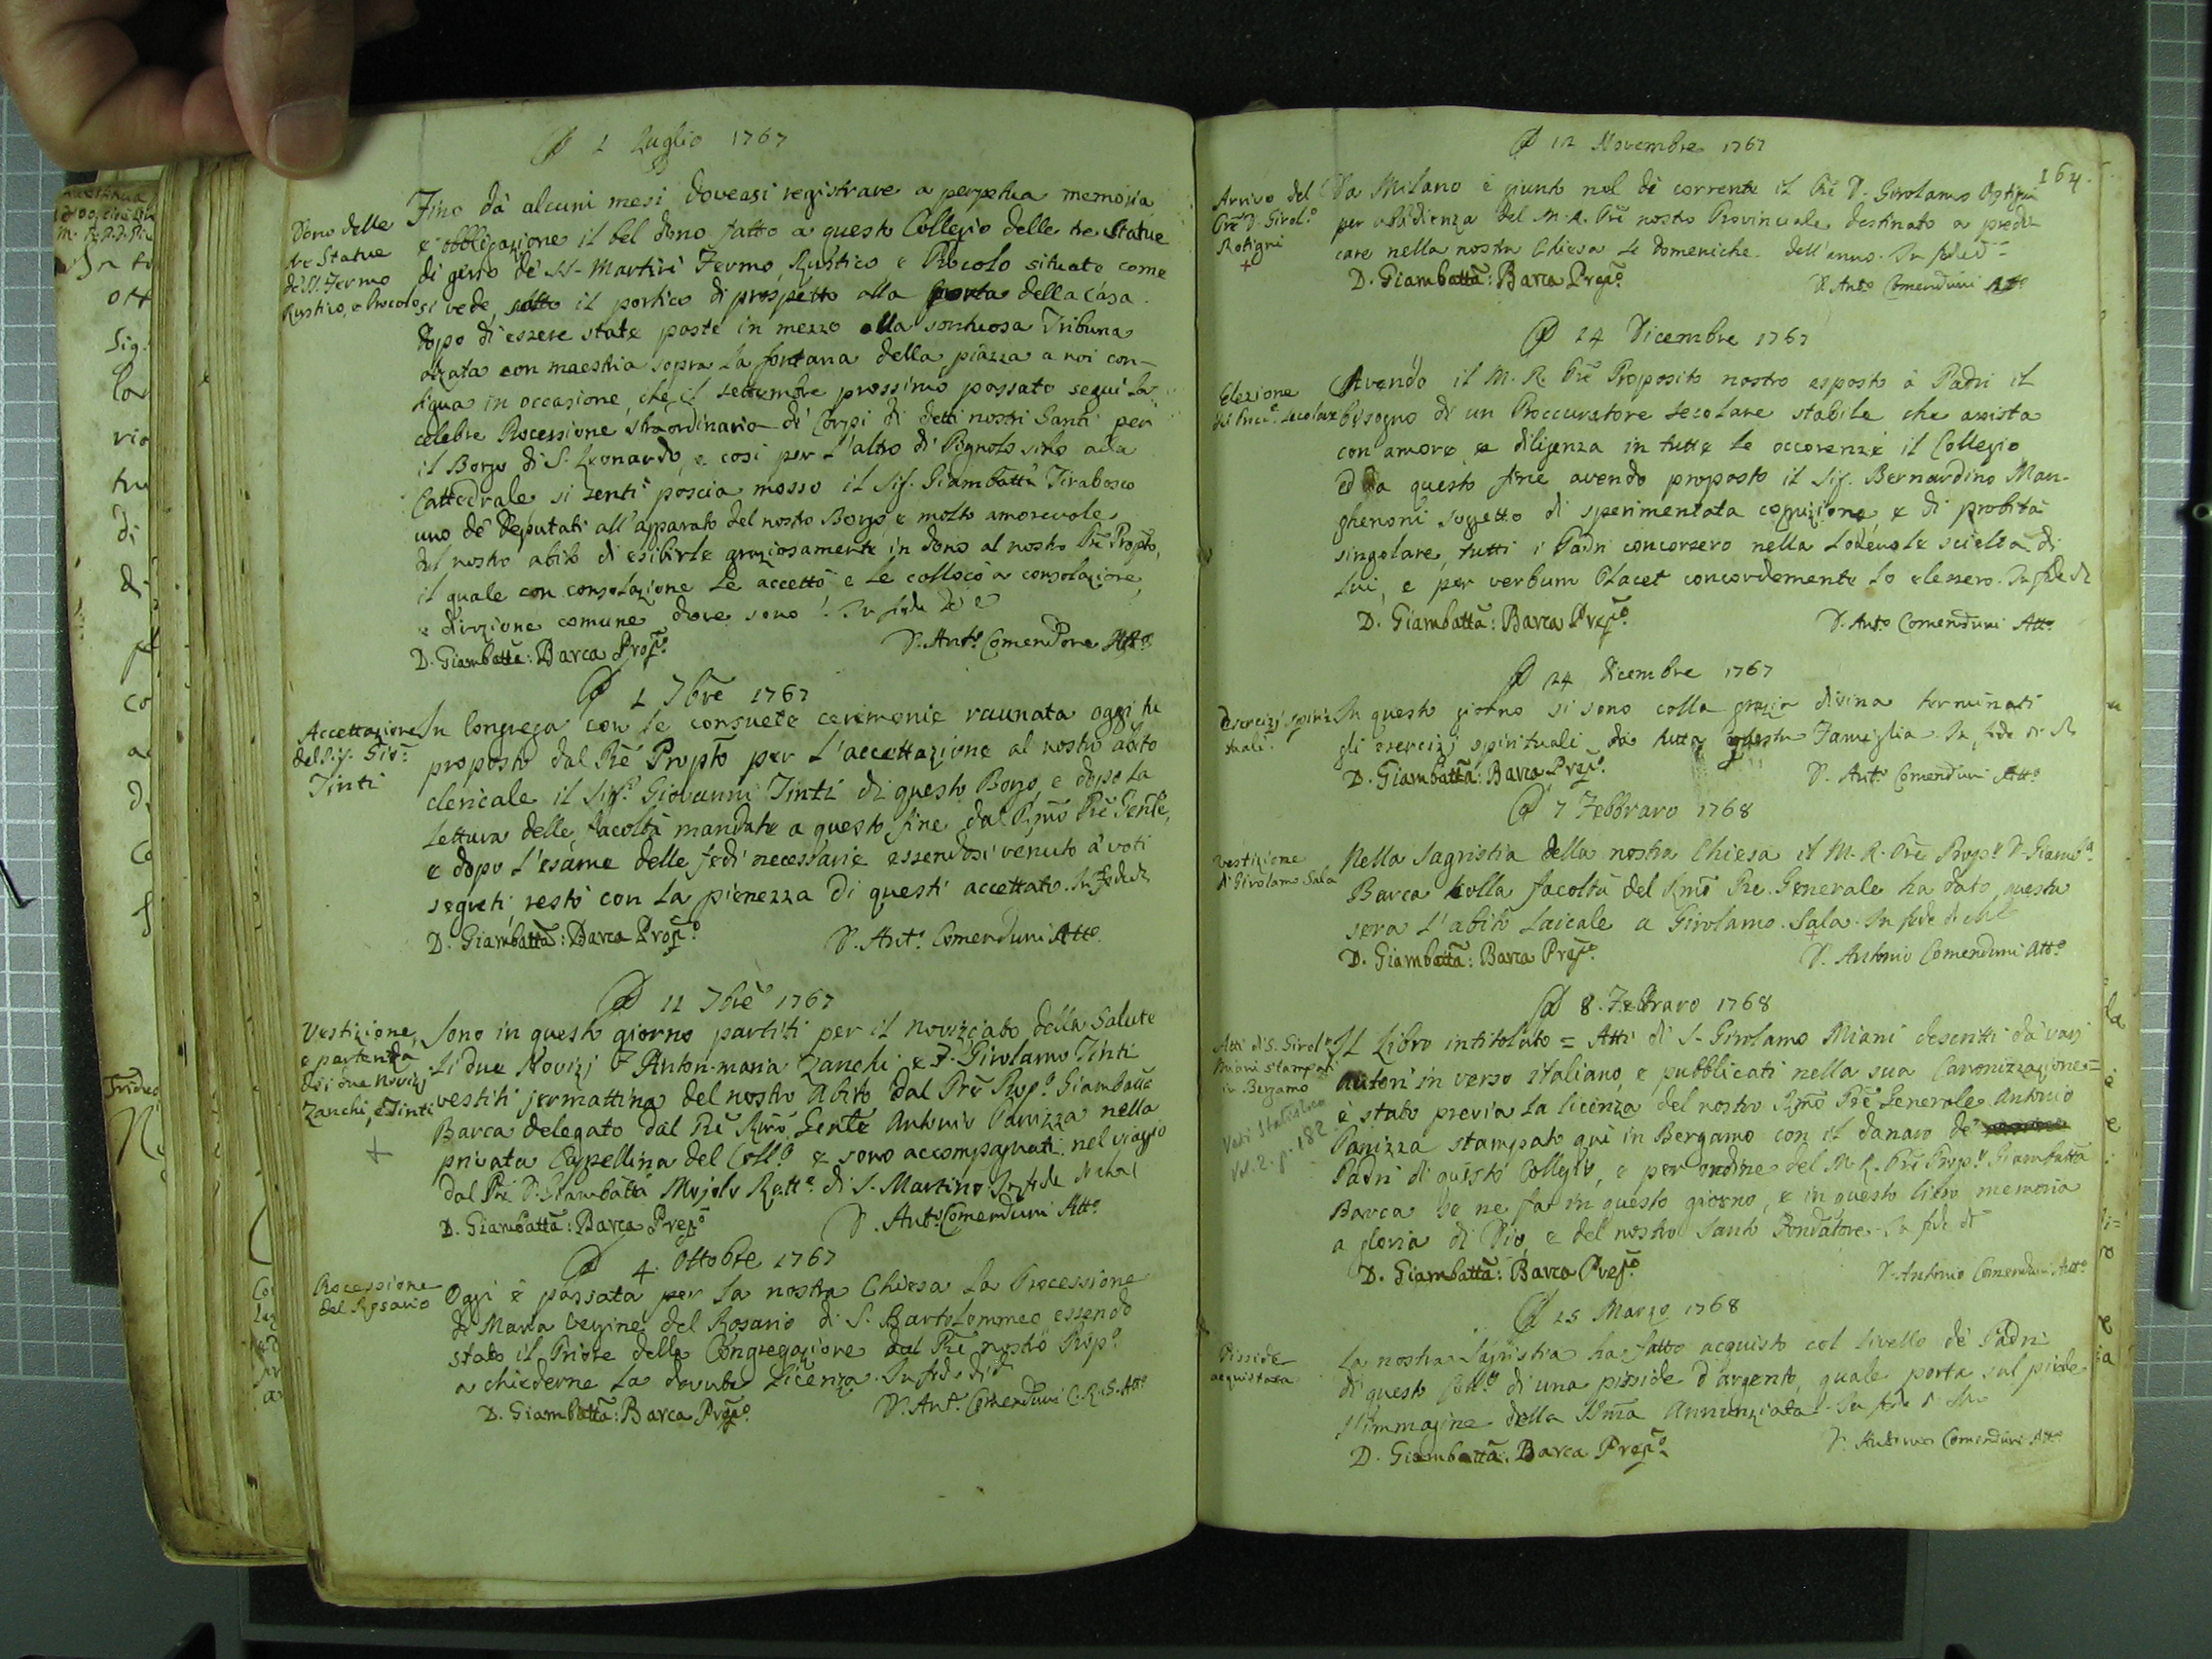 A 1 Luglio 1767
Dono delle
tre Statue
de SS. Fermo
Rustico, e Procolo
Fino da alcuni mesi doveasi registrare a perpetua memoria
e obbligazione il bel dono fatto a questo Collegio delle tre Statue
di gesso de' SS. Martiri Fermo, Rustico, e Procolo situate come
si vede, sotto il portico di prospetto alla porta della casa.
dopo di essere state poste in mezzo alla sontuosa Tribuna
alzata con maestria sopra la fontana della piazza a noi con-
tigua in occasione, che il settembre prossimo passato seguì la
celebre Processione straordinaria di Corpi di detti nostri Santi per
il Borgo di S. Leonardo, e così per l'altro di Pignolo sino alla
Cattedrale, si sentì poscia mosso il Sig. Giambatta Tirabosco
uno de' Deputati all'apparato del nostro Borgo, e molto amorevole
del nostro abito di esibirle graziosamente in dono al nostro Pre Propto,
il quale con consolazione le accettò e le collocò a consolazione,
e divozione comune dove sono. In fede
D. Giambatta: Barca Prepto.
D. Anto. Comendone Atto.
A 1 7bre 1767
Accettazione
del Sig. Gio:
Tinti
In Congrega con le consuete cerimonie raunata oggi fu
proposto dal Pre Propto per l'accettazione al nostro abito
clericale il Sigr. Giovanni Tinti di questo Borgo, e dopo la
lettura delle facoltà mandate a questo fine dal Rmo Pre Genle,
e dopo l'esame delle fedi necessarie essendosi venuto a' voti
segreti, restò con la pienezza di questi accettato. In fede di
D. Giambatta: Barca Prepo.
D. Anto. Comenduni Atto.
A 11 7bre 1767
Vestizione,
e partenza
dei due Novizj
Zanchi, e Tinti
+
Sono in questo giorno partiti per il noviziato della Salute
li due Novizj F. Anton-maria Zanchi e F. Girolamo Tinti
vestiti jermattina del nostro Abito dal Pre Propo Giambatta
Barca delegato dal Pre Rmo Genle Antonio Panizza nella
privata Cappellina del Collo. e sono accompagnati nel viaggio
dal Pre D. Giambatta Mojolo Rette. di S. Martino. In fede
D. Giambatta: Barca Prepo.
D. Anto. Comenduni Atto.
A 4. Ottobre 1767
Processione
del Rosario
Oggi è passata per la nostra Chiesa la Processione
di Maria Vergine del Rosario di S. Bartolommeo essendo
stato il Priore della Congregazione dal Pre nostro Propo.
a chiederne la dovuta licenza. In fede di
D. Giambatta: Barca Prepo.
D. Ant. Comenduni C.R.S. Atto
164.
A 12 Novembre 1767
Arrivo del
Pre D. Girolo.
Rotigni
+
Da Milano è giunto nel dì corrente il Pre D. Girolamo Rotigni
per ubbidienza del M. R. Pre nostro Provinciale destinato a predi-
care nella nostra Chiesa le domeniche dell'anno. In fede di
D. Giambatta: Barca Prepo.
D. Anto. Comenduni Atto.
A 24 Dicembre 1767
Elezione
del Procc. secolare
Avendo il M. R. Pre Proposito nostro esposto a' Padri il
bisogno di un Proccuratore secolare stabile che assista
con amore, e diligenza in tutte le occorenze il Collegio
ed a questo fine avendo proposto il Sig. Bernardino Man-
ghenoni soggetto di sperimentata cognizione, e di probità
singolare, tutti i Padri concorsero nella lodevole scielta di
lui, e per verbum Placet concordemente lo elessero. In fede di
D. Giambatta: Barca Prepo.
D. Anto. Comenduni Atto.
A 24 dicembre 1767
Esercizj spiri-
tuali.
In questo giorno si sono colla grazia divina terminati
gli esercizj spirituali da tutta questa Famiglia. In fede di
D. Giambatta: Barca Prepo.
D. Anto. Comenduni Atto.
A 7 Febbraro 1768
Vestizione
di Girolamo Sala
Nella Sagristia della nostra Chiesa il M. R. Pre Propo. D. Giamba.
Barca colla facoltà del Rmo Pre Generale ha dato questa
sera l'abito laicale a Girolamo Sala. In fede di
+
D. Giambatta: Barca Prepo.
D. Antonio Comenduni Atto.
A 8. Febbraro 1768
Atti di S. Girolo.
Miani stampati
in Bergamo
Vedi
Vol. 2. p. 182
Il Libro intitolato = Atti di S. Girolamo Miani descritti da varj
Autori in verso italiano, e pubblicati nella sua Canonizzazione =
è stato previa la licenza del nostro Rmo Pre Generale Antonio
Panizza stampato quì in Bergamo con il danaro de'
Padri di questo Collegio, e per ordine del M. R. Pre Propo. Giambatta
Barca se ne fa in questo giorno, e in questo libro memoria
a gloria di Dio, e del nostro Santo Fondatore. In fede di
D. Giambatta: Barca Prepo.
D. Antonio Comenduni Atto.
A 25 Marzo 1768
Pisside
acquistata
La nostra Sagristia ha fatto acquisto col livello de' Padri
di questo Collo. di una pisside d'argento, quale porta sul piede
l'immagine della SSma Annunziata. In fede
D. Giambatta: Barca Prepo.
D. Antonio Comenduni Atto.